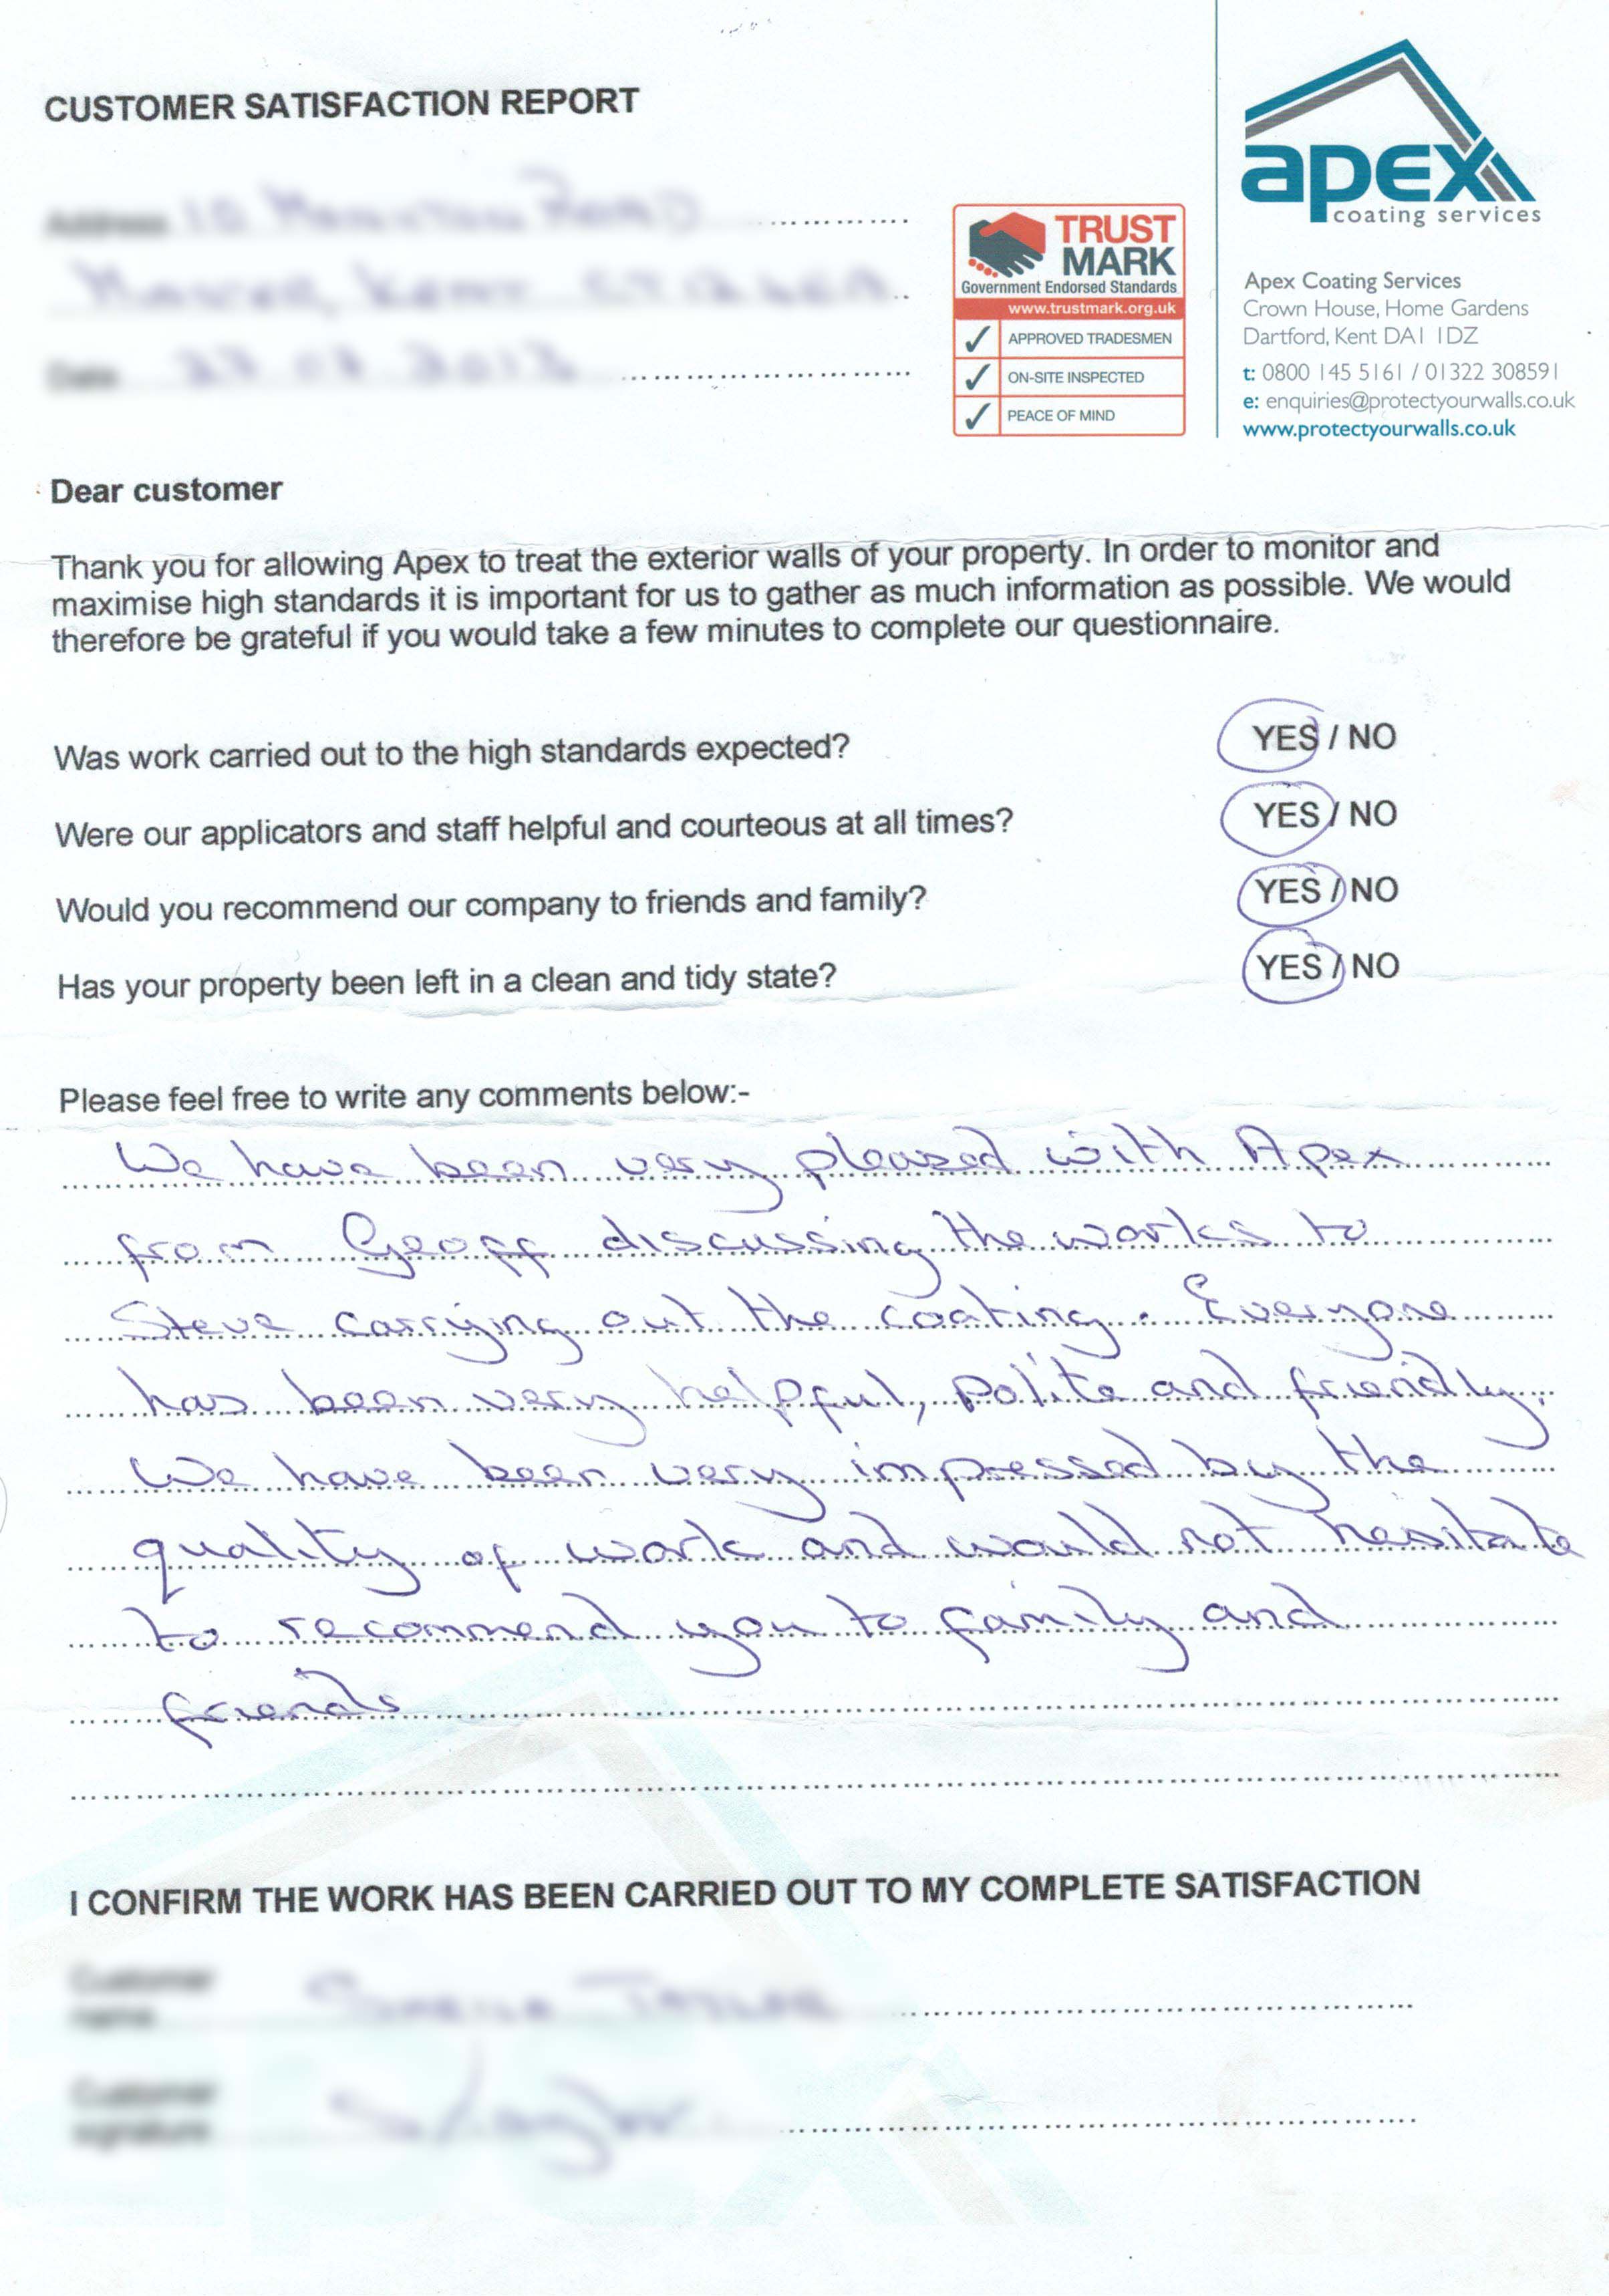 CUSTOMER SATISFACTION REPORT
apex
coating services
TRUST
MARK
Government Endorsed Standards
www.trustmark.org.uk
APPROVED TRADESMEN
ON-SITE INSPECTED
PEACE OF MIND
Apex Coating Services
Crown House, Home Gardens
Dartford, Kent DA1 1DZ
t: 0800 145 5161 / 01322 308591
e: enquiries@protectyourwalls.co.uk
www.protectyourwalls.co.uk
Dear customer
Thank you for allowing Apex to treat the exterior walls of your property. In order to monitor and
maximise high standards it is important for us to gather as much information as possible. We would
therefore be grateful if you would take a few minutes to complete our questionnaire.
Was work carried out to the high standards expected? YES / NO
Were our applicators and staff helpful and courteous at all times? YES / NO
Would you recommend our company to friends and family? YES / NO
Has your property been left in a clean and tidy state? YES / NO
Please feel free to write any comments below:-
We have been very pleased with Apex
from Geoff discussing the works to
Steve carrying out the coating. Everyone
has been very helpful, polite and friendly.
We have been very impressed by the
quality of work and would not hesitate
to recommend you to family and
friends
I CONFIRM THE WORK HAS BEEN CARRIED OUT TO MY COMPLETE SATISFACTION